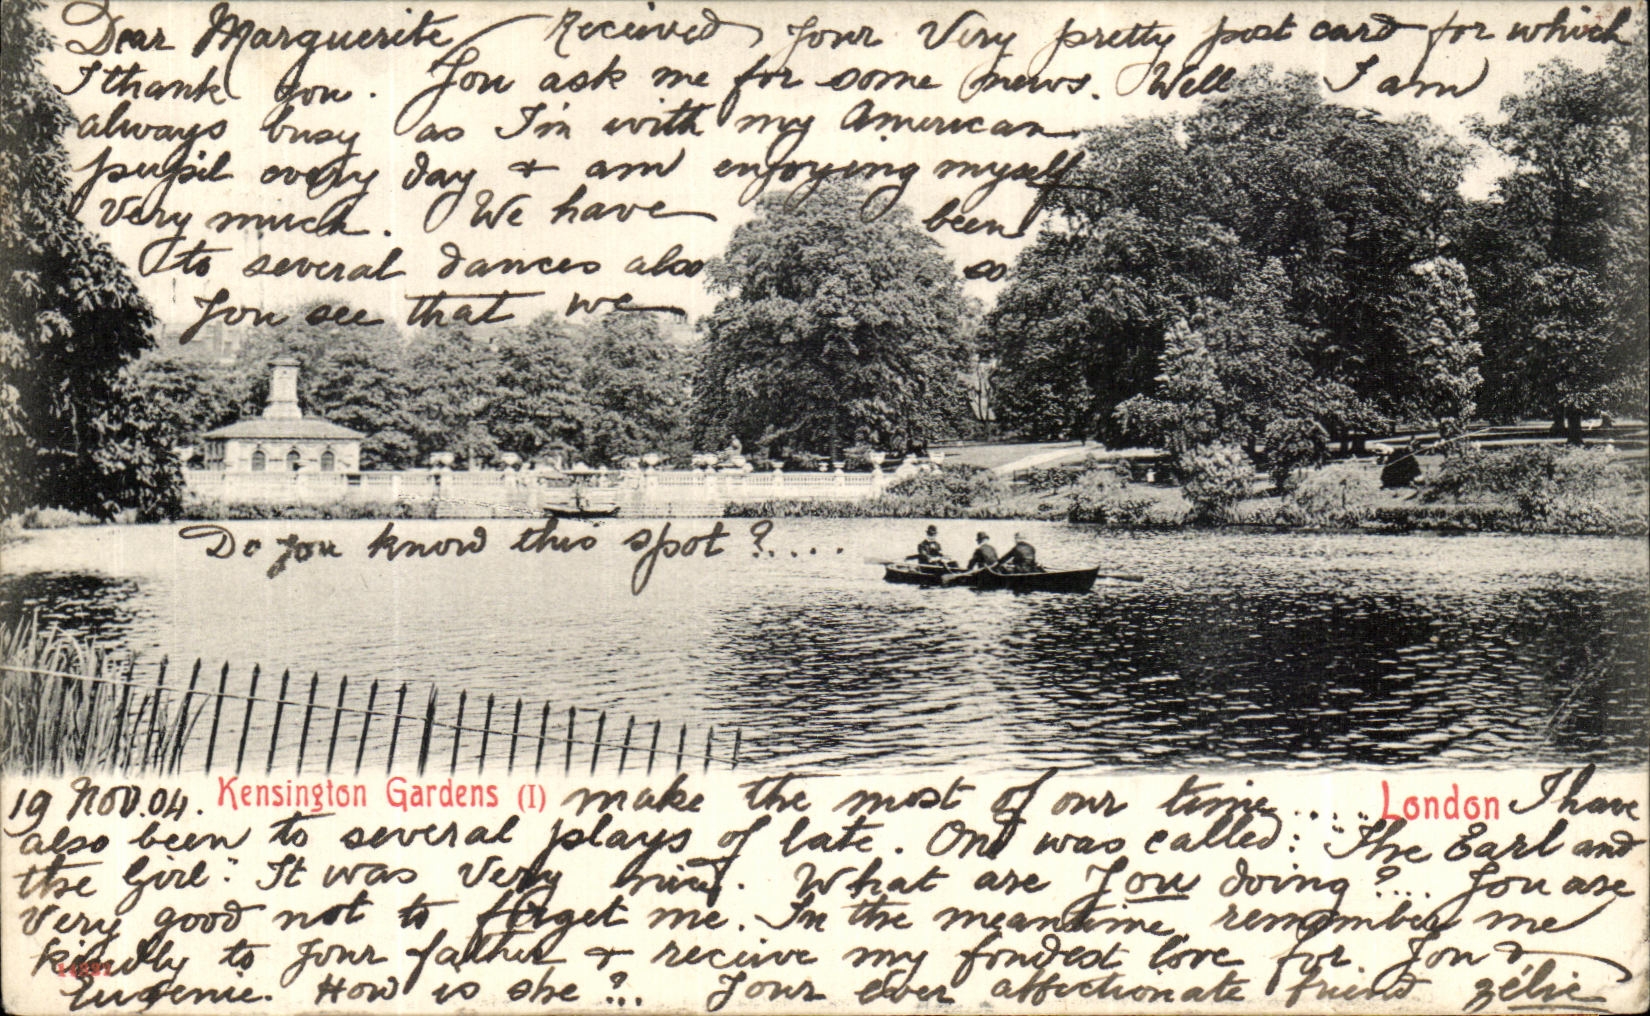 Dear Marguerite Received your very pretty post card for which
I thank you. You ask me for some news. Well I am
always busy as I'm with my American
pupil every day & am enjoying myself
very much. We have been
to several dances also so
you see that we
Do you know this spot?....
19 Nov.04. Kensington Gardens (I) make the most of our time .... London I have
also been to several plays of late. One was called: "The Earl and
the Girl". It was very nice. What are you doing?... You are
very good not to forget me. In the meantime, remember me
kindly to your father & receive my fondest love for you &
Eugenie. How is she?.. Your ever affectionate friend Zélie